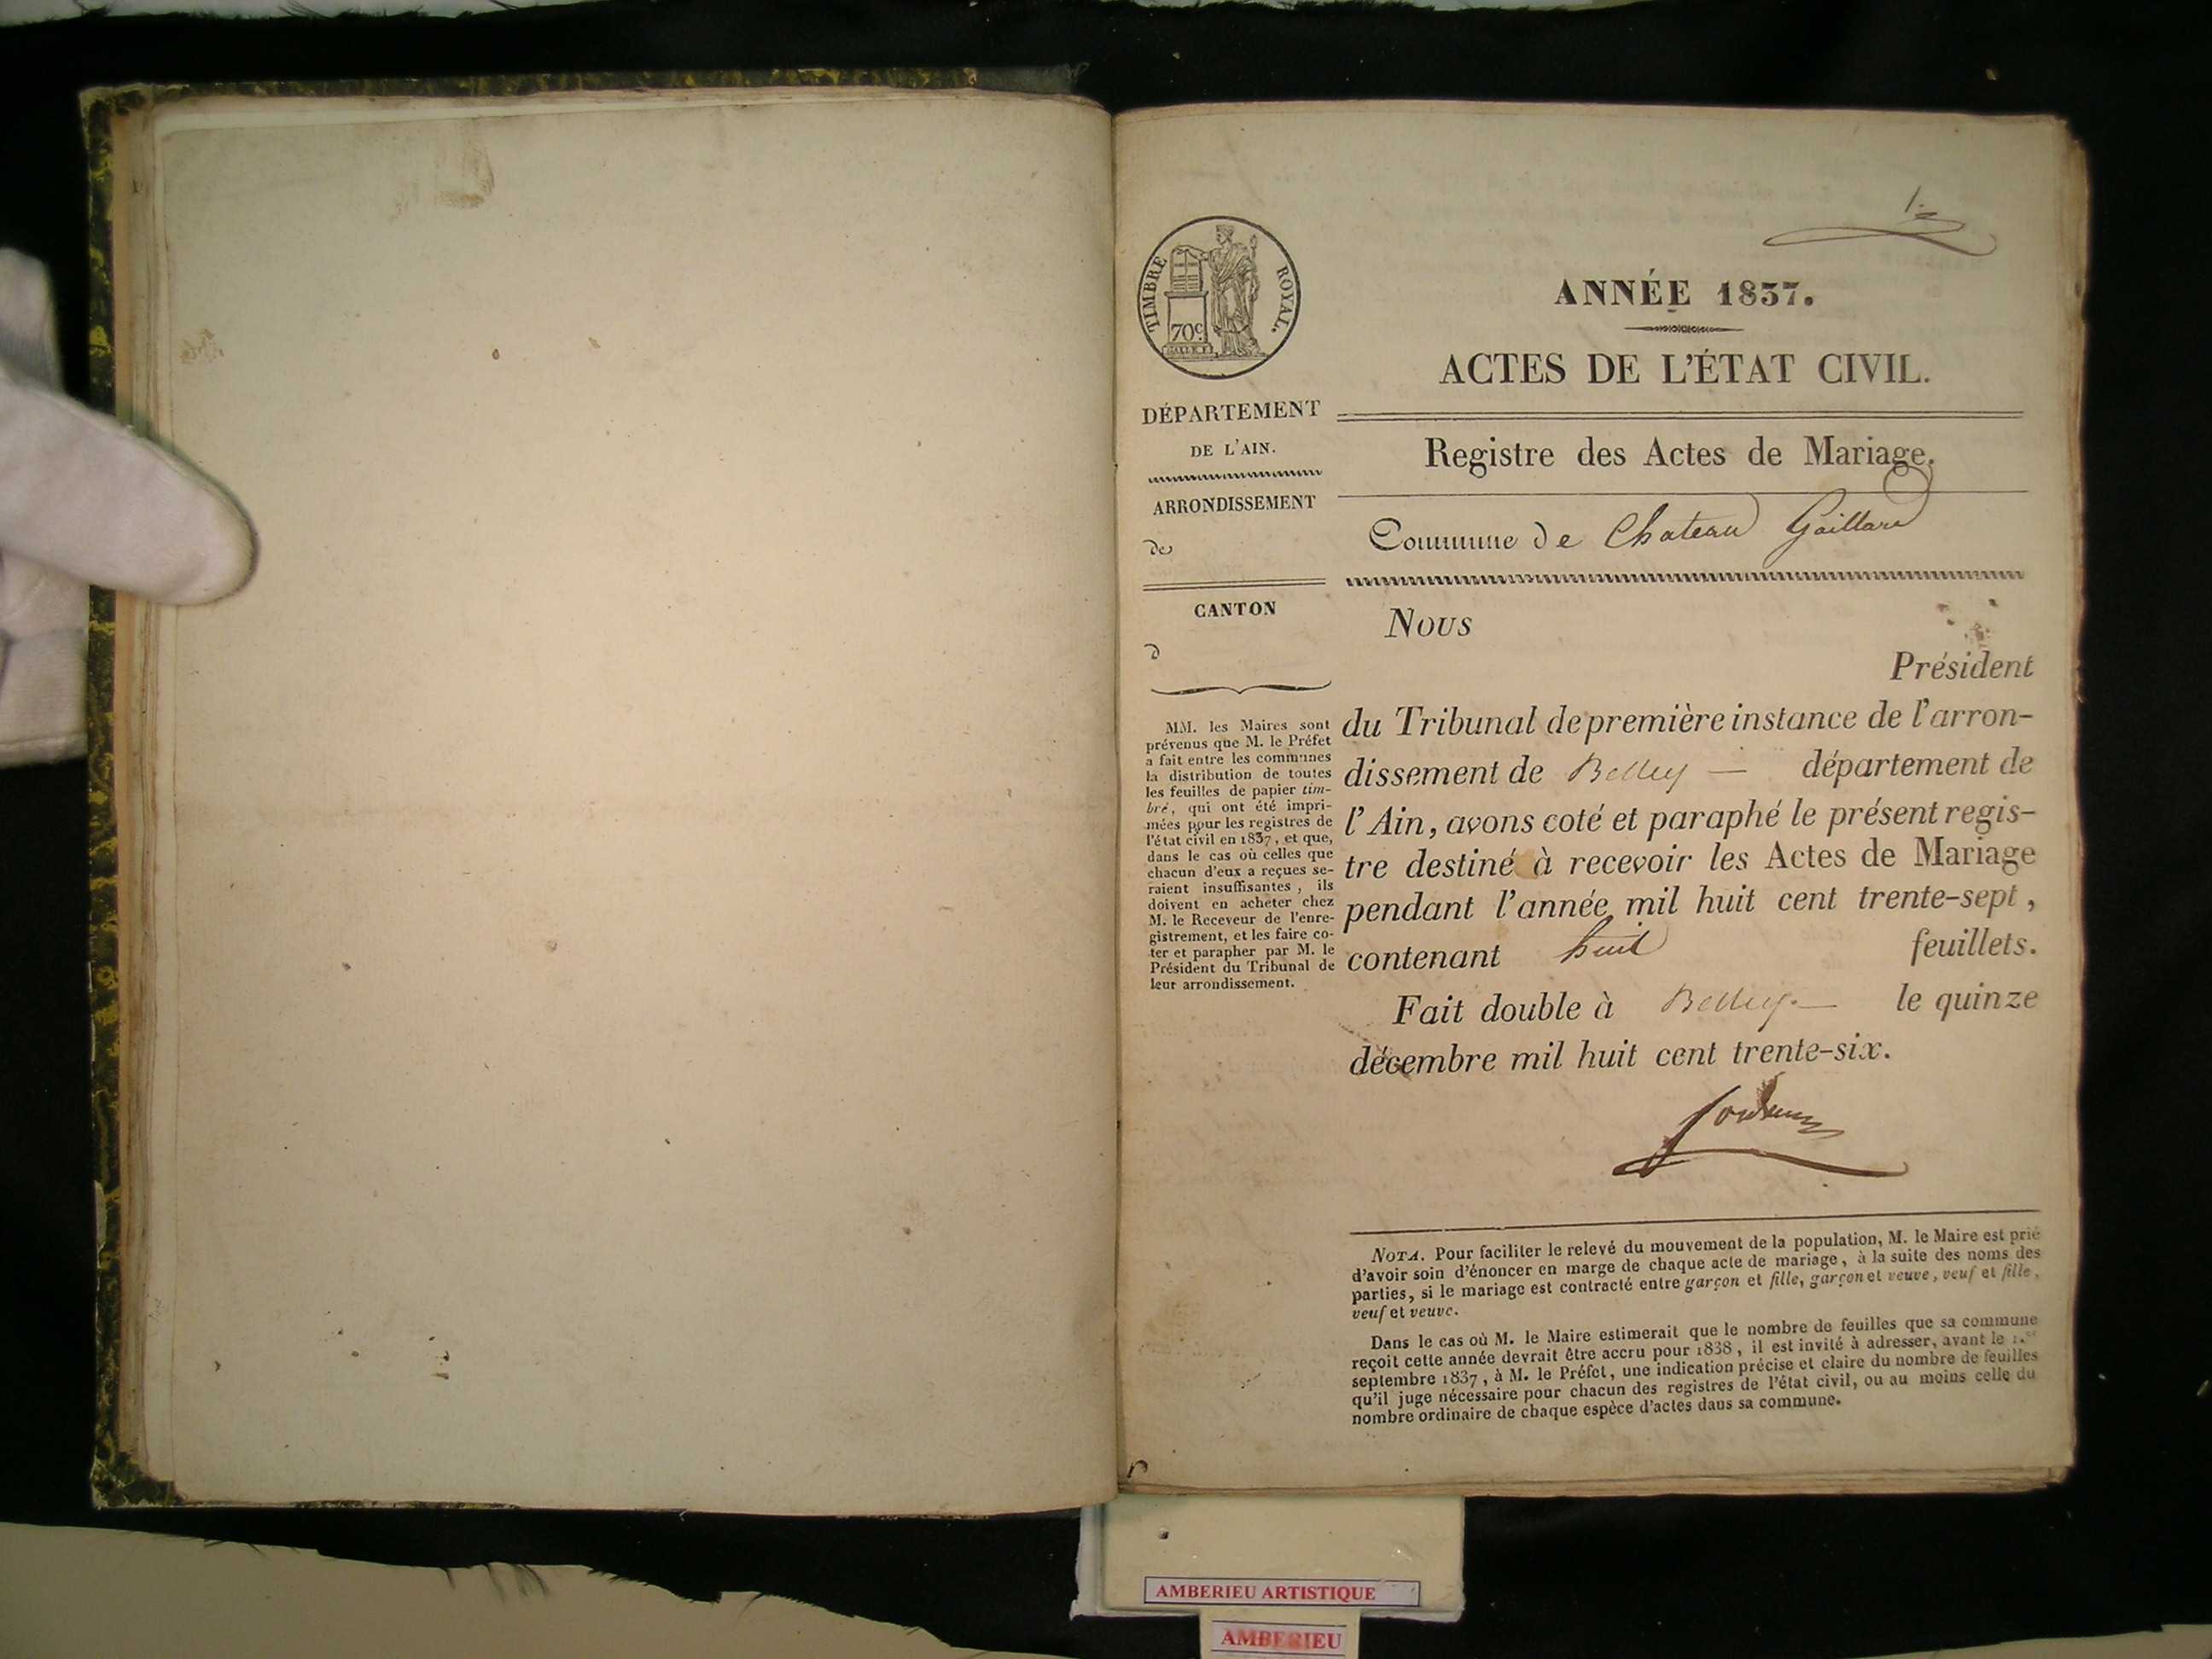 1.
TIMBRE ROYAL.
70c.
ANNÉE 1837.
ACTES DE L'ÉTAT CIVIL.
DÉPARTEMENT
DE L'AIN.
Registre des Actes de Mariage.
ARRONDISSEMENT
de
Commune de Chateau Gaillard
CANTON
d
MM. les Maires sont
prévenus que M. le Préfet
a fait entre les communes
la distribution de toutes
les feuilles de papier tim-
bré, qui ont été impri-
mées pour les registres de
l'état civil en 1837, et que,
dans le cas où celles que
chacun d'eux a reçues se-
raient insuffisantes, ils
doivent en acheter chez
M. le Receveur de l'enre-
gistrement, et les faire co-
ter et parapher par M. le
Président du Tribunal de
leur arrondissement.
Nous
Président
du Tribunal de première instance de l'arron-
dissement de Belley — département de
l'Ain, avons coté et paraphé le présent regis-
tre destiné à recevoir les Actes de Mariage
pendant l'année mil huit cent trente-sept,
contenant huit feuillets.
Fait double à Belley — le quinze
décembre mil huit cent trente-six.
NOTA. Pour faciliter le relevé du mouvement de la population, M. le Maire est prié
d'avoir soin d'énoncer en marge de chaque acte de mariage, à la suite des noms des
parties, si le mariage est contracté entre garçon et fille, garçon et veuve, veuf et fille,
veuf et veuve.
Dans le cas où M. le Maire estimerait que le nombre de feuilles que sa commune
reçoit cette année devrait être accru pour 1838, il est invité à adresser, avant le 1.er
septembre 1837, à M. le Préfet, une indication précise et claire du nombre de feuilles
qu'il juge nécessaire pour chacun des registres de l'état civil, ou au moins celle du
nombre ordinaire de chaque espèce d'actes dans sa commune.
AMBERIEU ARTISTIQUE
AMBERIEU